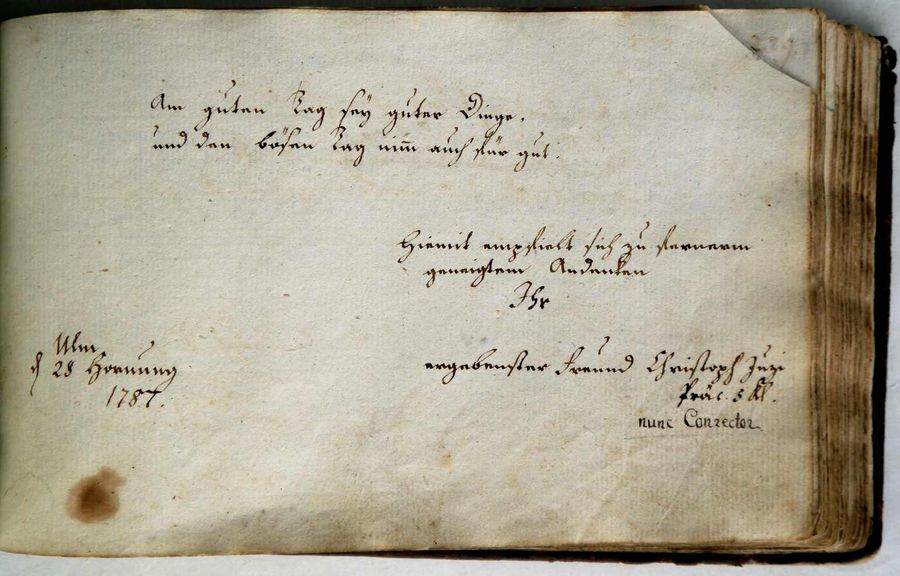 Am guten Tag sey guter Dinge,
und den bösen Tag nim̅ auch für gut.
Hiemit empfielt sich zu fernerm
geneigtem Andenken
Ihr
Ulm
d 28 Hornung
1787.
ergebenster Freund Christoph
Präc. 5 Kl.
nunc Conrector